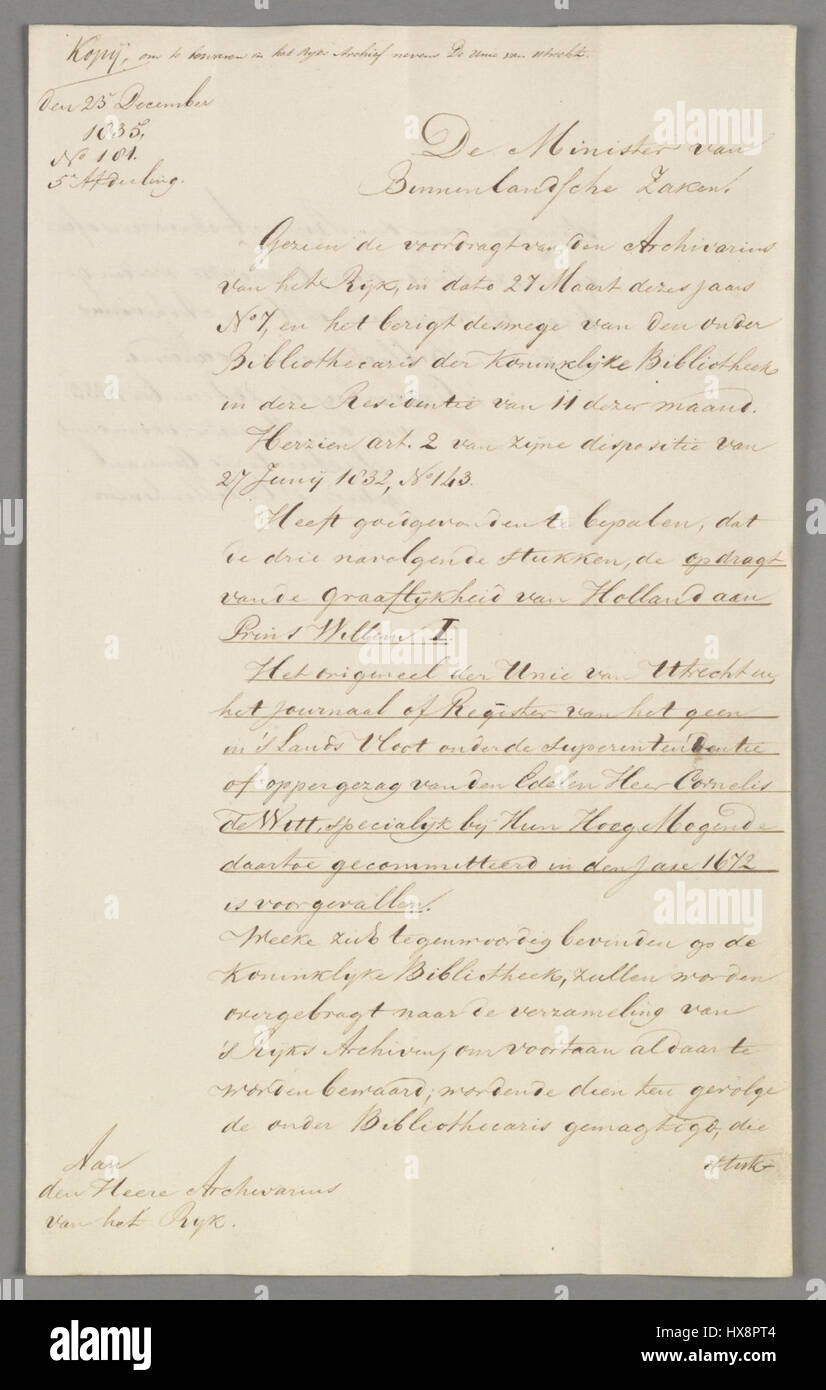 Kopij, om te bewaren in het Ryks Archief nevens De Unie van Utrecht.
den 23 December
1835,
No 181.
5e Afdeeling.
De Minister van
Binnenlandsche Zaken.
Gezien de voordragt van den Archivarius
van het Ryk, in dato 27 Maart dezes jaars
No 7, en het berigt deswege van den onder
Bibliothecaris der Koninklijke Bibliotheek
in deze Residentie van 11 dezer maand.
Herzien art. 2 van zijne dispositie van
27 Junij 1832, No 143.
Heeft goedgevonden te bepalen, dat
de drie navolgende stukken, de opdragt
van de Graaflijkheid van Holland aan
Prins Willem I.
Het origineel der Unie van Utrecht en
het Journaal of Register van het geen
in 's Lands Vloot onder de superintendentie
of oppergezag van den Edelen Heer Cornelis
de Witt, specialijk bij Hun Hoog Mogende
daartoe gecommitteerd in den Jare 1672
is voorgevallen.
Welke zich tegenwoordig bevinden op de
Koninklijke Bibliotheek, zullen worden
overgebragt naar de verzameling van
's Rijks Archiven, om voortaan aldaar te
worden bewaard; wordende dien ten gevolge
de onder Bibliothecaris gemagtigd, die
stuk-
Aan
den Heere Archivarius
van het Ryk.
alamy
alamy
Image ID: HX8PT4
www.alamy.com